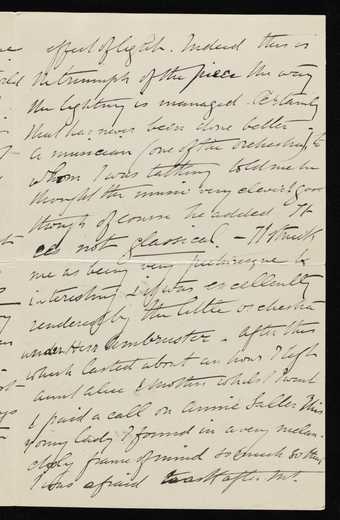 effect of light. Indeed this is
the triumph of the piece the way
the lightning is managed. Certainly
that has never been done better -
A musician (one of the orchestra) to
whom I was talking told me he
thought the music very clever & good
though of course he added It
is not classical. - It struck
me as being very picturesque &
interesting & it was excellently
rendered by the little orchestra
under Herr Armbruster. After this
which lasted about an hour I left
Aunt Alice & mother whilst I went
& paid a call on Annie Salles. This
young lady I found in a very melan-
choly frame of mind so much so that
I was afraid to ask after Mr.